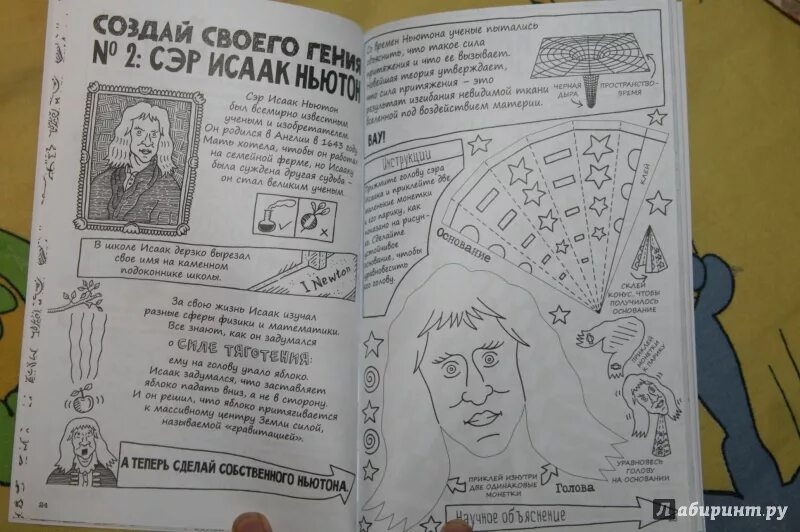 СОЗДАЙ СВОЕГО ГЕНИЯ
№ 2: СЭР ИСААК НЬЮТОН
Сэр Исаак Ньютон
был всемирно известным
ученым и изобретателем.
Он родился в Англии в 1643 году.
Мать хотела, чтобы он работал
на семейной ферме, но Исааку
была суждена другая судьба –
он стал великим ученым.
В школе Исаак дерзко вырезал
свое имя на каменном
подоконнике школы.
I Newton
За свою жизнь Исаак изучал
разные сферы физики и математики.
Все знают, как он задумался
о СИЛЕ ТЯГОТЕНИЯ:
ему на голову упало яблоко.
Исаак задумался, что заставляет
яблоко падать вниз, а не в сторону.
И он решил, что яблоко притягивается
к массивному центру Земли силой,
называемой «гравитацией».
А ТЕПЕРЬ СДЕЛАЙ СОБСТВЕННОГО НЬЮТОНА.
84
Со времен Ньютона ученые пытались
объяснить, что такое сила
притяжения и что ее вызывает.
Новейшая теория утверждает,
что сила притяжения – это
результат изгибания невидимой ткани
Вселенной под воздействием материи.
ЧЕРНАЯ
ДЫРА
ПРОСТРАНСТВО-
ВРЕМЯ
ВАУ!
Инструкции
голову сэра
Исаака и приклейте две
маленькие монетки
к его парику, как
показано на рисун-
ке. Сделайте
устойчивое
основание, чтобы
уравновесить
его голову.
Основание
КЛЕЙ
СКЛЕЙ
КОНУС, ЧТОБЫ
ПОЛУЧИЛОСЬ
ОСНОВАНИЕ
ПРИКЛЕЙ
МОНЕТКИ
К ПАРИКУ
УРАВНОВЕСЬ
ГОЛОВУ
НА ОСНОВАНИИ
ПРИКЛЕЙ ИЗНУТРИ
ДВЕ ОДИНАКОВЫЕ
МОНЕТКИ
Голова
Научное объяснение
Лабиринт.ру